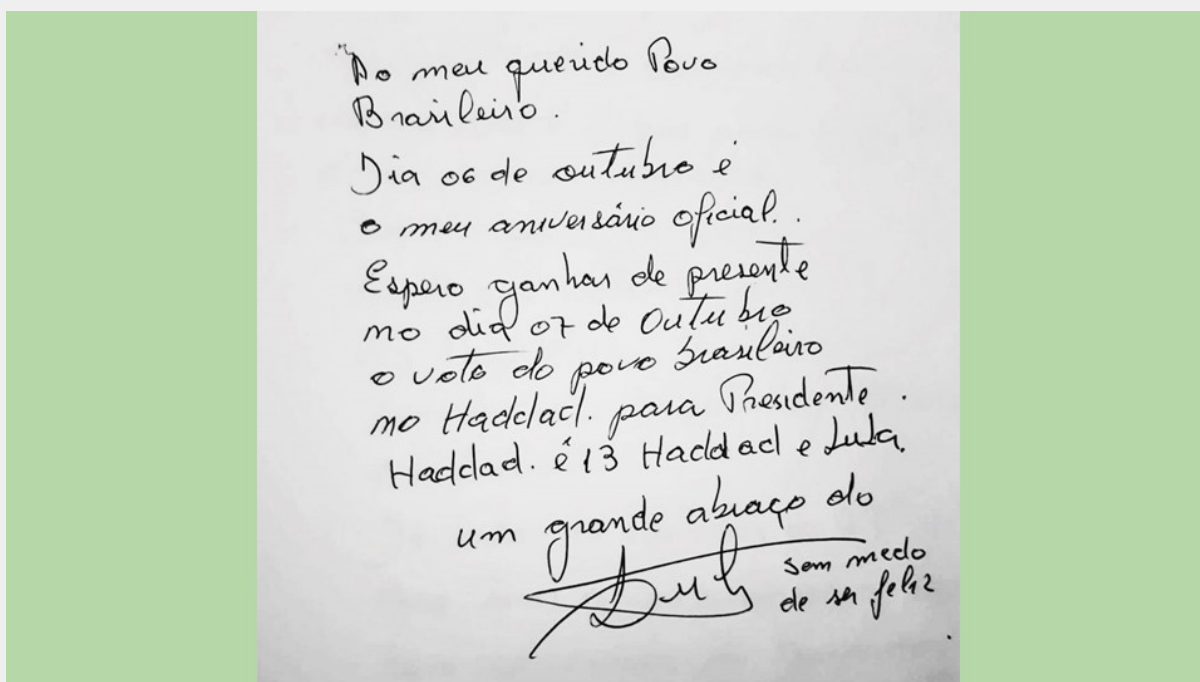 Ao meu querido Povo
Brasileiro.
Dia 06 de outubro é
o meu aniversário oficial.
Espero ganhar de presente
no dia 07 de Outubro
o voto do povo brasileiro
no Haddad. para Presidente.
Haddad. é 13 Haddad e Lula.
um grande abraço do
Lula
sem medo
de ser feliz